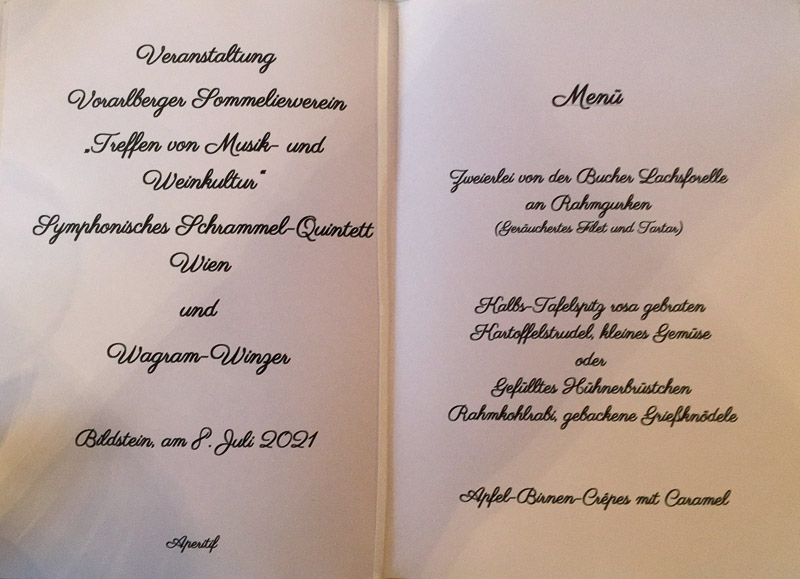 Veranstaltung
Vorarlberger Sommelierverein
„Treffen von Musik- und
Weinkultur“
Symphonisches Schrammel-Quintett
Wien
und
Wagram-Winzer
Bildstein, am 8. Juli 2021
Aperitif
Menü
Zweierlei von der Bucher Lachsforelle
an Rahmgurken
(Geräuchertes Filet und Tartar)
Kalbs-Tafelspitz rosa gebraten
Kartoffelstrudel, kleines Gemüse
oder
Gefülltes Hühnerbrüstchen
Rahmkohlrabi, gebackene Grießknödele
Apfel-Birnen-Crêpes mit Caramel